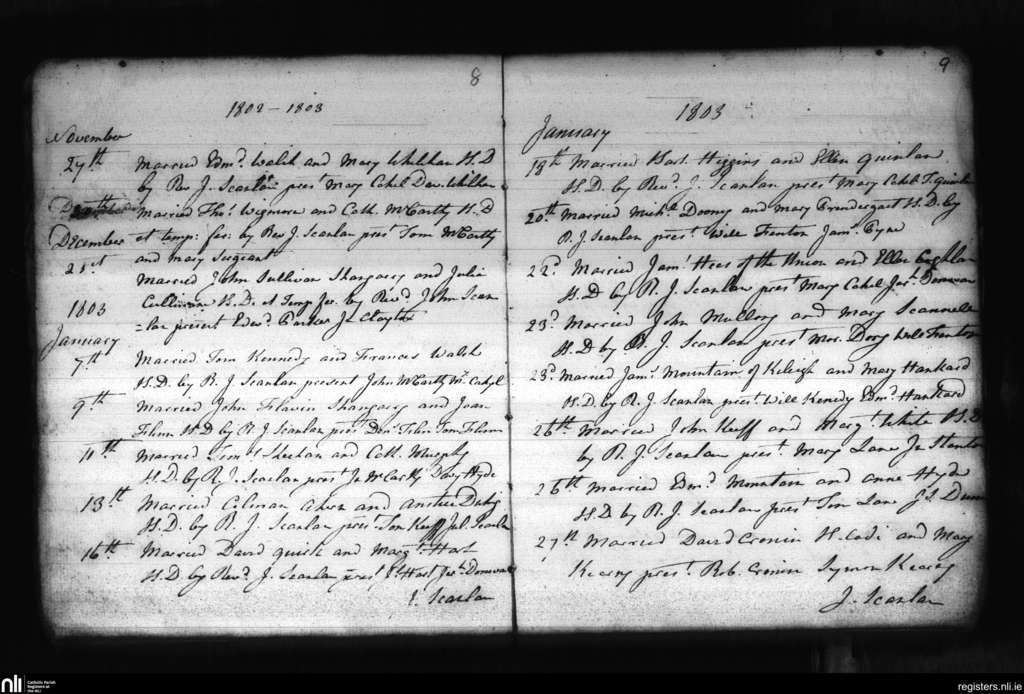 8
1802 - 1803
November
27th Married Edmd. Walsh and Mary Whelhan H.D
by Rev J. Scanlan prest. Mary Cahel Dav. Whelhan
Married Thos. Wigmore and Cath. McCarthy H.D
December et temp: fer: by Rev J. Scanlan prest. Tom McCarthy
and Mary Sergeant
21st Married John Sullivan Shangarry and Julia
Cullinan H.D. et Temp fer. by Revd. John Scan
1803 =lan present Edwd. Parker Jn Clayton
January
7th Married Tom Kennedy and Frances Walsh
H.D. by R. J. Scanlan present John McCarthy
9th Married John Flavin Shangarry and Joan
H.D by R J. Scanlan prest. Den. Tom
11th Married Sheehan and Cath. Murphy
H.D. by R. J. Scanlan prest. Jn McCarthy Davy Hyde
13th Married Colman Ahern and
H.D. by R. J. Scanlan prest. Tom Keeff Jul. Scanlan
16th Married David Quirk and Margt. Hart
H.D. by Revd. J. Scanlan prest. Hart Donovan
J. Scanlan
9
1803
January
19th Married Bart. Higgins and Ellen Quinlan
H.D. by Revd. J. Scanlan prest. Mary Cahel T. Quinlan
20th Married Michl. and Mary Prendergast H.D. by
R. J. Scanlan prest. Will Stenton Jams.
22d. Married Jams. Hees of the Union and Ellen Coghlan
H.D by R. J. Scanlan prest. Mary Cahel Donovan
23d. Married John Mullony and Mary Scannell
H.D. by R. J. Scanlan prest. Will Stenton
23d. Married Jams. Mountain of Kileigh and Mary Hankard
H.D. by R. J. Scanlan prest. Will Kenedy Edmd. Hankard
26th Married John Keeff and Margt. White H.D
by R. J. Scanlan prest. Mary Lane Jn Stenton
26th Married Edmd. Mountain and Anne Hyde
H.D by R. J. Scanlan prest. Tom Lane
27th Married David Cronin and Mary
Kearny prest. Rob. Cronin Symon Kearny
J. Scanlan
nli
Catholic Parish
Registers at
the NLI
registers.nli.ie